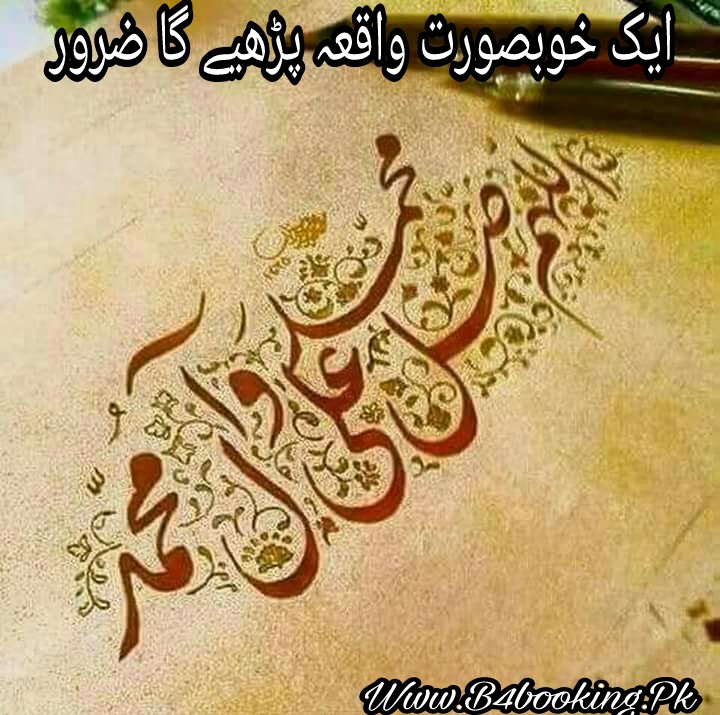 ایک خوبصورت واقعہ پڑھیے گا ضرور
اللهم صل على محمد وآل محمد
Www.B4booking.Pk